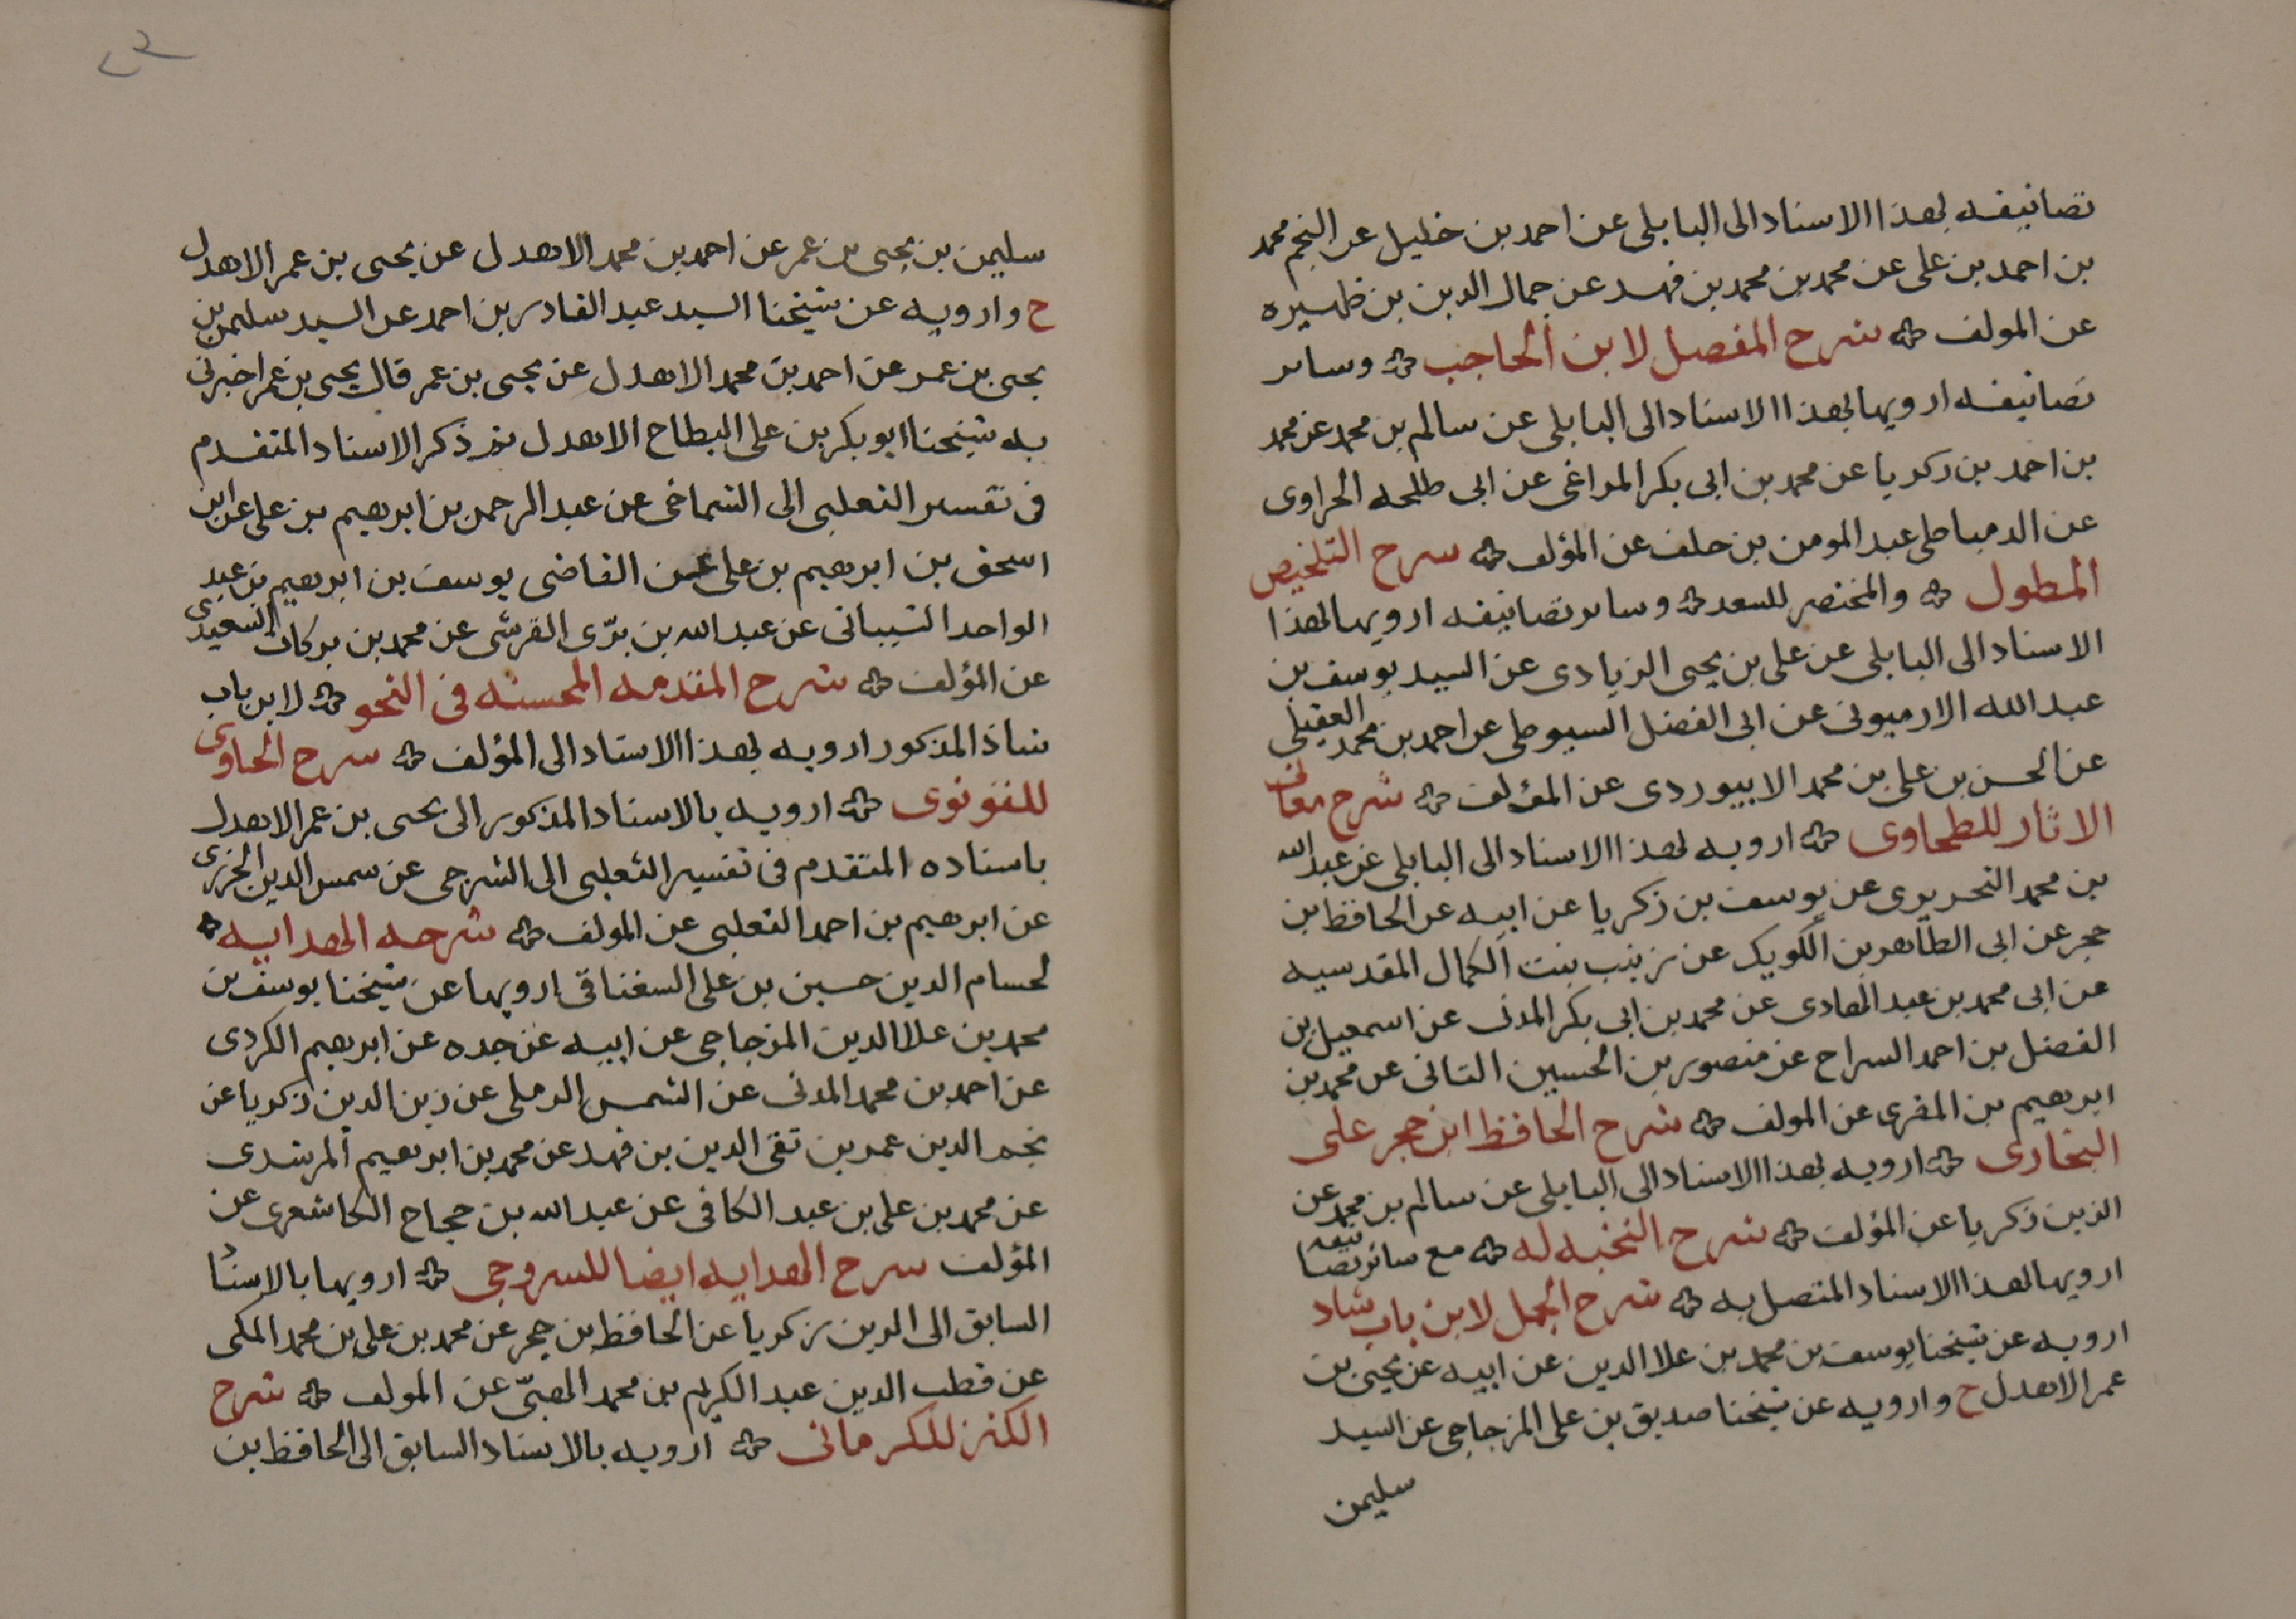 تصانيفه بهذا الاسناد الى البابلى عن احمد بن خليل عن النجم محمد
بن احمد بن على عن محمد بن محمد بن فهد عن جمال الدين بن ظهيره
عن المولف شرح المفصل لابن الحاجب وساىر
تصانيفه ارويها بهذا الاسناد الى البابلى عن سالم بن محمد عن محمد
بن احمد بن زكريا عن محمد بن ابى بكر المراغى عن ابى طلحه الحراوى
عن الدمياطى عبد المومن بن خلف عن المؤلف شرح التلخيص
المطول والمختصر للسعد وساىر تصانيفه ارويها بهذا
الاسناد الى البابلى عن على بن يحيى الزيادى عن السيد يوسف بن
عبد الله الارميونى عن ابى الفضل السيوطى عن احمد بن محمد العقيلى
عن الحسن بن على بن محمد الابيوردى عن المؤلف شرح معانى
الاثار للطحاوى ارويه بهذا الاسناد الى البابلى عن عبد الله
بن محمد النحريرى عن يوسف بن زكريا عن ابيه عن الحافظ بن
حجر عن ابى الطاهر بن الكويك عن زينب بنت الكمال المقدسيه
عن ابى محمد بن عبد الهادى عن محمد بن ابى بكر المدنى عن اسمعيل بن
الفضل بن احمد السراج عن منصور بن الحسين التانى عن محمد بن
ابرهيم بن المقرى عن المولف شرح الحافظ ابن حجر على
البخارى ارويه بهذا الاسناد الى البابلى عن سالم بن محمد عن
الزين زكريا عن المؤلف شرح النخبه له مع سائر تصانيفه
ارويها بهذا الاسناد المتصل به شرح الجمل لابن باب شاد
ارويه عن شيخنا يوسف بن محمد بن علا الدين عن ابيه عن يحيى بن
عمر الاهدل ح وارويه عن شيخنا صديق بن على المزجاجى عن السيد
سليمن
سليمن بن يحيى بن عمر عن احمد بن محمد الاهدل عن يحيى بن عمر الاهدل
ح وارويه عن شيخنا السيد عبد القادر بن احمد عن السيد سليمن بن
يحيى بن عمر عن احمد بن محمد الاهدل عن يحيى بن عمر قال يحيى بن عمر اخبرنى
به شيخنا ابو بكر بن على البطاح الاهدل ثم ذكر الاسناد المتقدم
فى تفسير الثعلبى الى الشماخى عن عبد الرحمن بن ابرهيم بن على عن ابن
اسحق بن ابرهيم بن على عن القاضى يوسف بن ابرهيم بن عبد
الواحد الشيبانى عن عبد الله بن برّى القرشى عن محمد بن بركات السعيدى
عن المؤلف شرح المقدمه المحسنه فى النحو لابن باب
شاذ المذكور ارويه بهذا الاسناد الى المؤلف شرح الحاوى
للقونوى ارويه بالاسناد المذكور الى يحيى بن عمر الاهدل
باسناده المتقدم فى تفسير الثعلبى الى الشرجى عن شمس الدين الجزرى
عن ابرهيم بن احمد الثعلبى عن المولف شرحه الهدايه
لحسام الدين حسين بن على السغناقى ارويها عن شيخنا يوسف بن
محمد بن علا الدين المزجاجى عن ابيه عن جده عن ابرهيم الكردى
عن احمد بن محمد المدنى عن الشمس الرملى عن زين الدين زكريا عن
نجم الدين عمر بن تقى الدين بن فهد عن محمد بن ابرهيم المرشدى
عن محمد بن على بن عبد الكافى عن عبد الله بن حجاج الكاشغرى عن
المؤلف شرح الهدايه ايضا للسروجى ارويها بالاسنا
السابق الى الدين زكريا عن الحافظ بن حجر عن محمد بن على بن محمد المكى
عن قطب الدين عبد الكريم بن محمد عن المولف شرح
الكنز للكرمانى ارويه بالاسناد السابق الى الحافظ بن